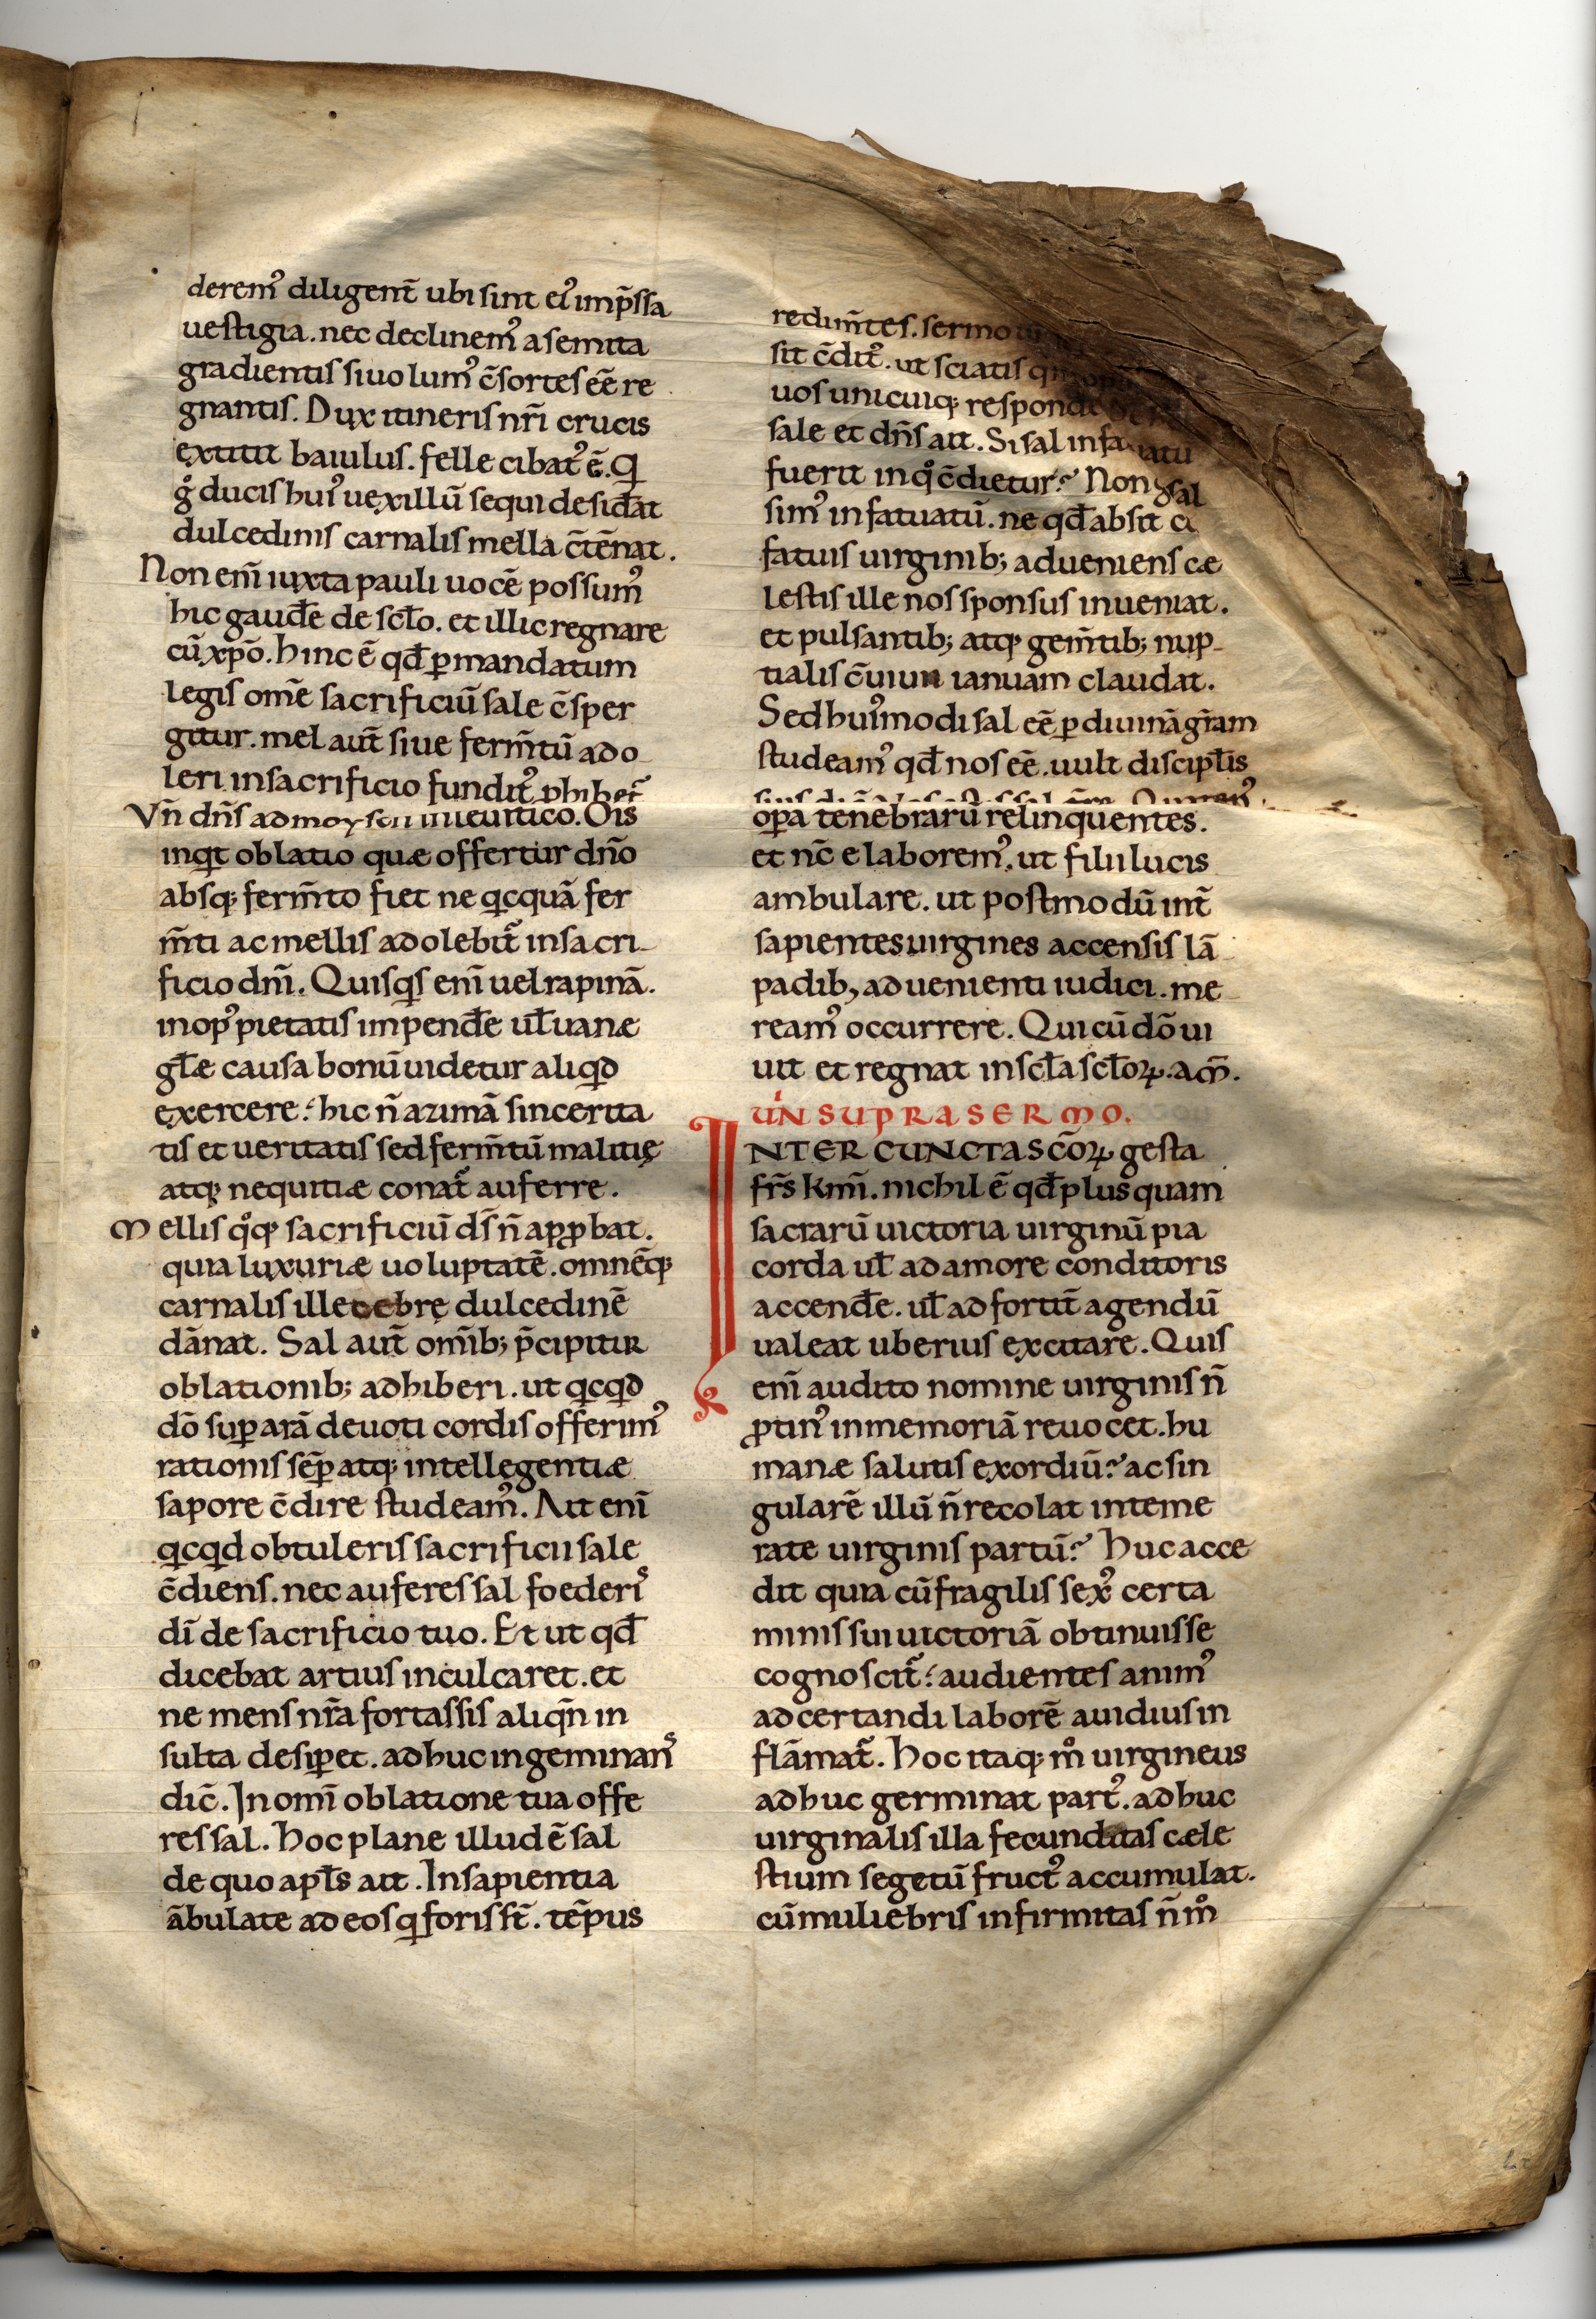 derem᾽ diligent̄ ubi sint ei᾽ imp̄ssa
uestigia. nec declinem᾽ a semita
gradientis si uolum᾽ c̄sortes eē re
gnantis. Dux itineris nr̄i crucis
extitit baiulus. felle cibat᾽ ē. Qui
g̊ ducis hui᾽ uexillū sequi desid̄at
dulcedinis carnalis mella c̄tēnat.
Non eni̅ iuxta pauli uocē possum᾽
hic gaud̄e de scło. et illic regnare
cū xp̄o. hinc ē qd̄ ꝑ mandatum
legis om̄e sacrificiū sale c̄sper
gitur. mel aut̄ siue ferm̄tū ado
leri in sacrificio fundit᾽ ꝓhibet᾽
Vn̄ dn̄s ad moysen in leuitico. Ois̄
inqͥt oblatio quæ offertur dn̄o
absq; ferm̄to fiet ne qͥcquā fer
m̄ti ac mellis adolebit᾽ in sacri-
ficio dn̄i. Quisqͥs eni̅ uel rapinā.
in op᾽ pietatis impend̄e uł uanæ
głæ causa bonū uidetur aliqͥd
exercere: hic n̄ azimā sincerita
tis et ueritatis sed ferm̄tū malitię
atq; nequitiæ conat᾽ auferre.
Mellis qͦq; sacrificiū ds̄ n̄ apꝓbat.
quia luxuriæ uoluptatē. omnēq;
carnalis illecebrę dulcedinē
dānat. Sal aut̄ omīb; p̄cipitur
oblationib; adhiberi. ut qͥcqͥd
dō suꝑ arā deuoti cordis offerim᾽
rationis sēꝑ atq; intellegentiæ
sapore c̄dire studeam᾽. Ait eni̅
qͥcqͥd obtuleris sacrificii sale
c̄diens. nec auferes sal foederis
dī de sacrificio tuo. Et ut qd̄
dicebat artius inculcaret. et
ne mens nr̄a fortassis aliqn̄ in
sulta desiꝑet. adhuc ingeminans
dic̄. In omī oblatione tua offe
res sal. Hoc plane illud ē sal
de quo apłs ait. In sapientia
ābulate ad eos qui foris st̄. tēpus
redim̄tes. sermo
sit c̄dit᾽. ut sciatis
uos unicuiq; responde
sale et dn̄s ait. Si sal infatuatu
fuerit in qͦ c̄dietur? Non g̊ sal
sim᾽ infatuatū. ne qd̄ absit c
fatuis uirginib; adueniens cæ
lestis ille nos sponsus inueniat.
et pulsantib; atq; gem̄tib; nup-
tialis c̄uiuii ianuam claudat.
Sed hui᾽modi sal eē ꝑ diuinā gr̄am
studeam᾽ qd̄ nos eē. uult discipłis
oꝑa tenebrarū relinquentes.
et nc̄ elaborem᾽. ut filii lucis
ambulare. ut postmodū int̄
sapientes uirgines accensis lā
padib, aduenienti iudici. me
ream᾽ occurrere. Qui cū dō ui
uit et regnat in scła scłoꝝ. am̄.
UN SUPRA SERMO.
INTER CUNCTA SCŌꝝ gesta
fr̄s kmī. nichil ē qd̄ plus quam
sacrarū uictoria uirginū pia
corda uł ad amore conditoris
accend̄e. uł ad fortit̄ agendū
ualeat uberius excitare. Quis
eni̅ audito nomine uirginis n̄
ꝓtin᾽ in memoriā reuocet. hu
manæ salutis exordiū? ac sin
gularē illū n̄ recolat inteme
rate uirginis partū? Huc acce
dit quia cū fragilis sex᾽ certa
minis sui uictoriā obtinuisse
cognoscit᾽: audientes anim᾽
ad certandi laborē auidius in
flāmat᾽. Hoc itaq; m̊ uirgineus
adhuc germinat part᾽. adhuc
uirginalis illa fecunditas cæle
stium segetū fruct᾽ accumulat.
cū muliebris infirmitas n̄ m̊